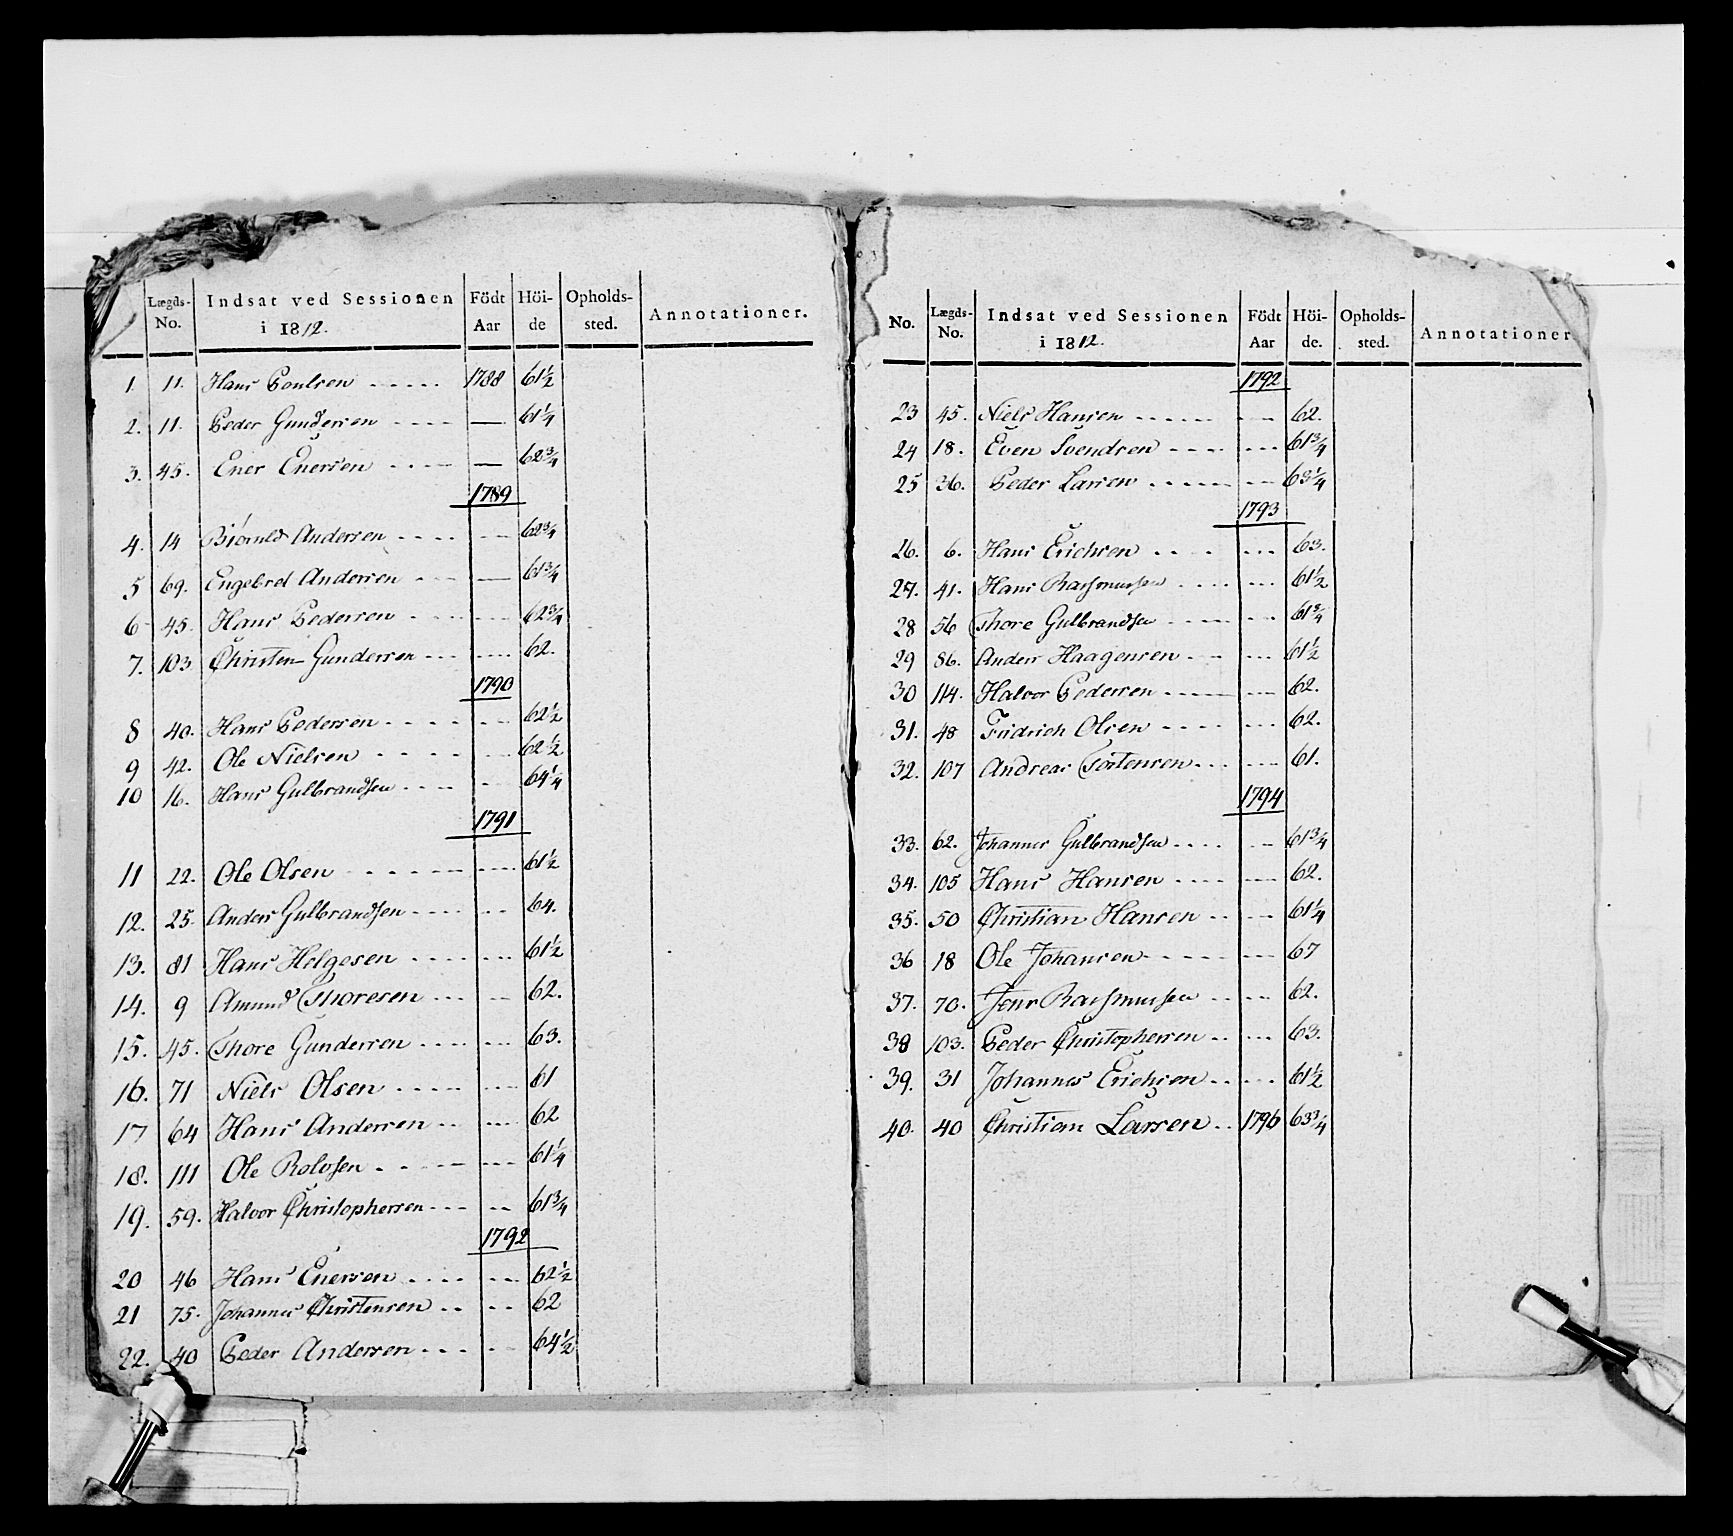 Lægds-No. Indsat ved Sessionen i 1812. Födt Aar Höi-de Opholds-sted. Annotationer.
1. 11. Hans Poulsen 1788 61½
2. 11. Peder Gundersen — 61¼
3. 45. Ener Enersen — 62¾
1789
4. 14 Andersen 62¾
5 69. Engebret Andersen — 61¾
6 45. Hans Pedersen 62¾
7. 103 Christen Gundersen 62.
1790
8 40. Hans Pedersen 62½
9 42. Ole Nielsen 62½
10 16. Hans Gulbrandsen 64¼
1791
11 22. Ole Olsen 61½
12. 25. Anders Gulbrandsen 64.
13. 81 Hans Helgesen 61½
14. 9 Amund Thoresen 62.
15. 45. Thore Gundersen 63.
16. 71 Niels Olsen 61
17 64 Hans Andersen 62
18. 111 Ole Rolvsen 61¼
19. 59. Halvor Christophersen 61¾
1792
20 46 Hans Enersen 62½
21 75. Johannes Christensen 62
22. 40 Peder Andersen 64½
No. Lægds-No. Indsat ved Sessionen i 1812. Födt Aar Höi-de. Opholds-sted. Annotationer
1792
23 45. Niels Hansen 62.
24 18. Even Svendsen 61¾
25 36. Peder Larsen 63¼
1793
26. 6. Hans Erichsen 63.
27. 41. Hans Rasmussen 61½
28 56 Thore Gulbrandsen 61¾
29 86. Anders Haagensen 61½
30 114. Halvor Pedersen 62.
31. 48 Fridrich Olsen 62.
32. 107 Andreas Torstensen 61.
1794
33. 62. Johannes Gulbrandsen 61¾
34. 105 Hans Hansen 62.
35. 50 Christian Hansen 61¼
36 18 Ole Johansen 67
37. 70. Jens Rasmussen 62.
38 103. Peder Christophersen 63.
39. 31 Johannes Erichsen 61½
40. 40 Christian Larsen 1796 63¾